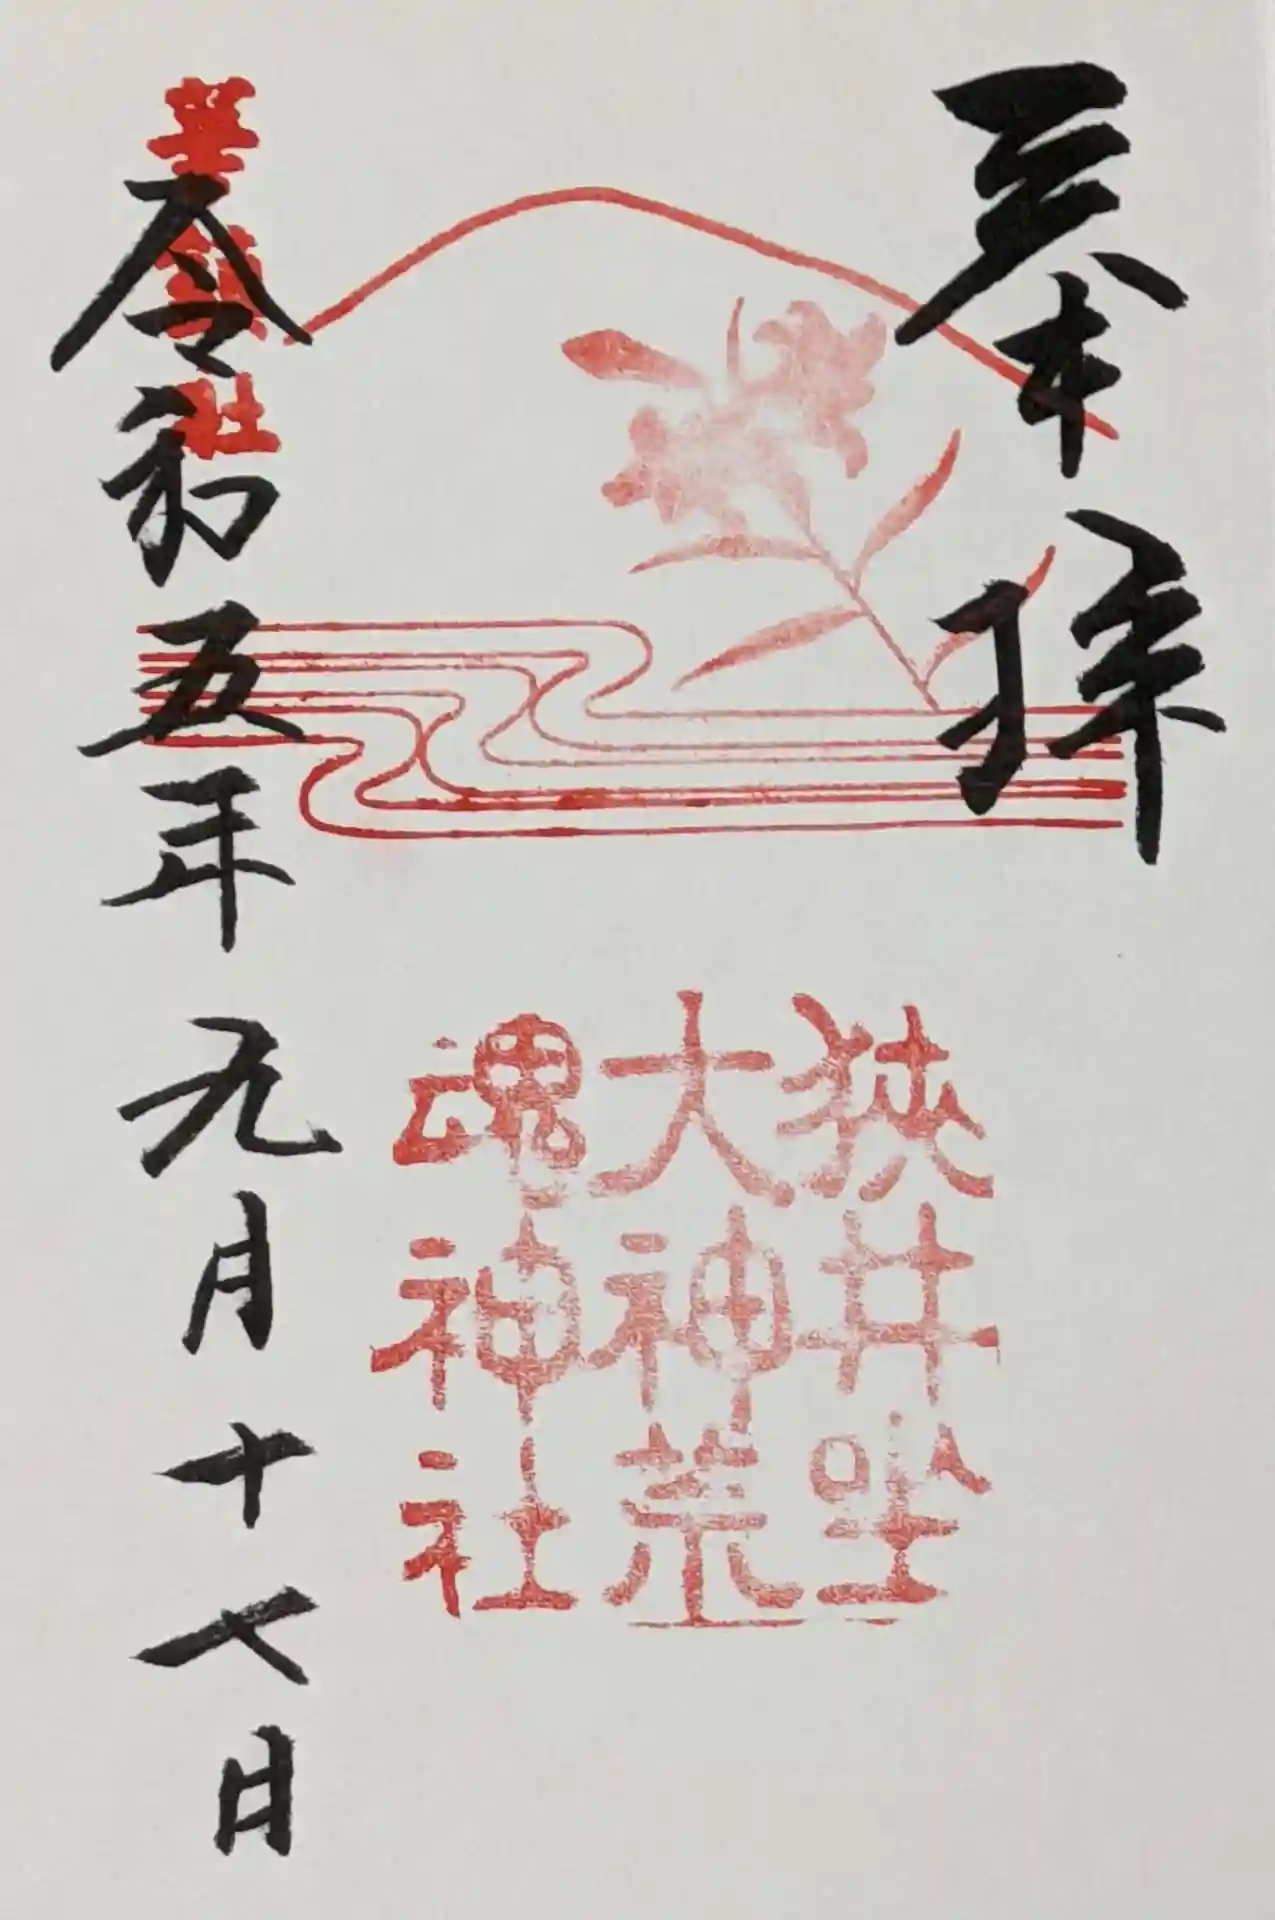 奉拝
狭井坐
大神荒
魂神社
華鎮社
令和五年九月十七日